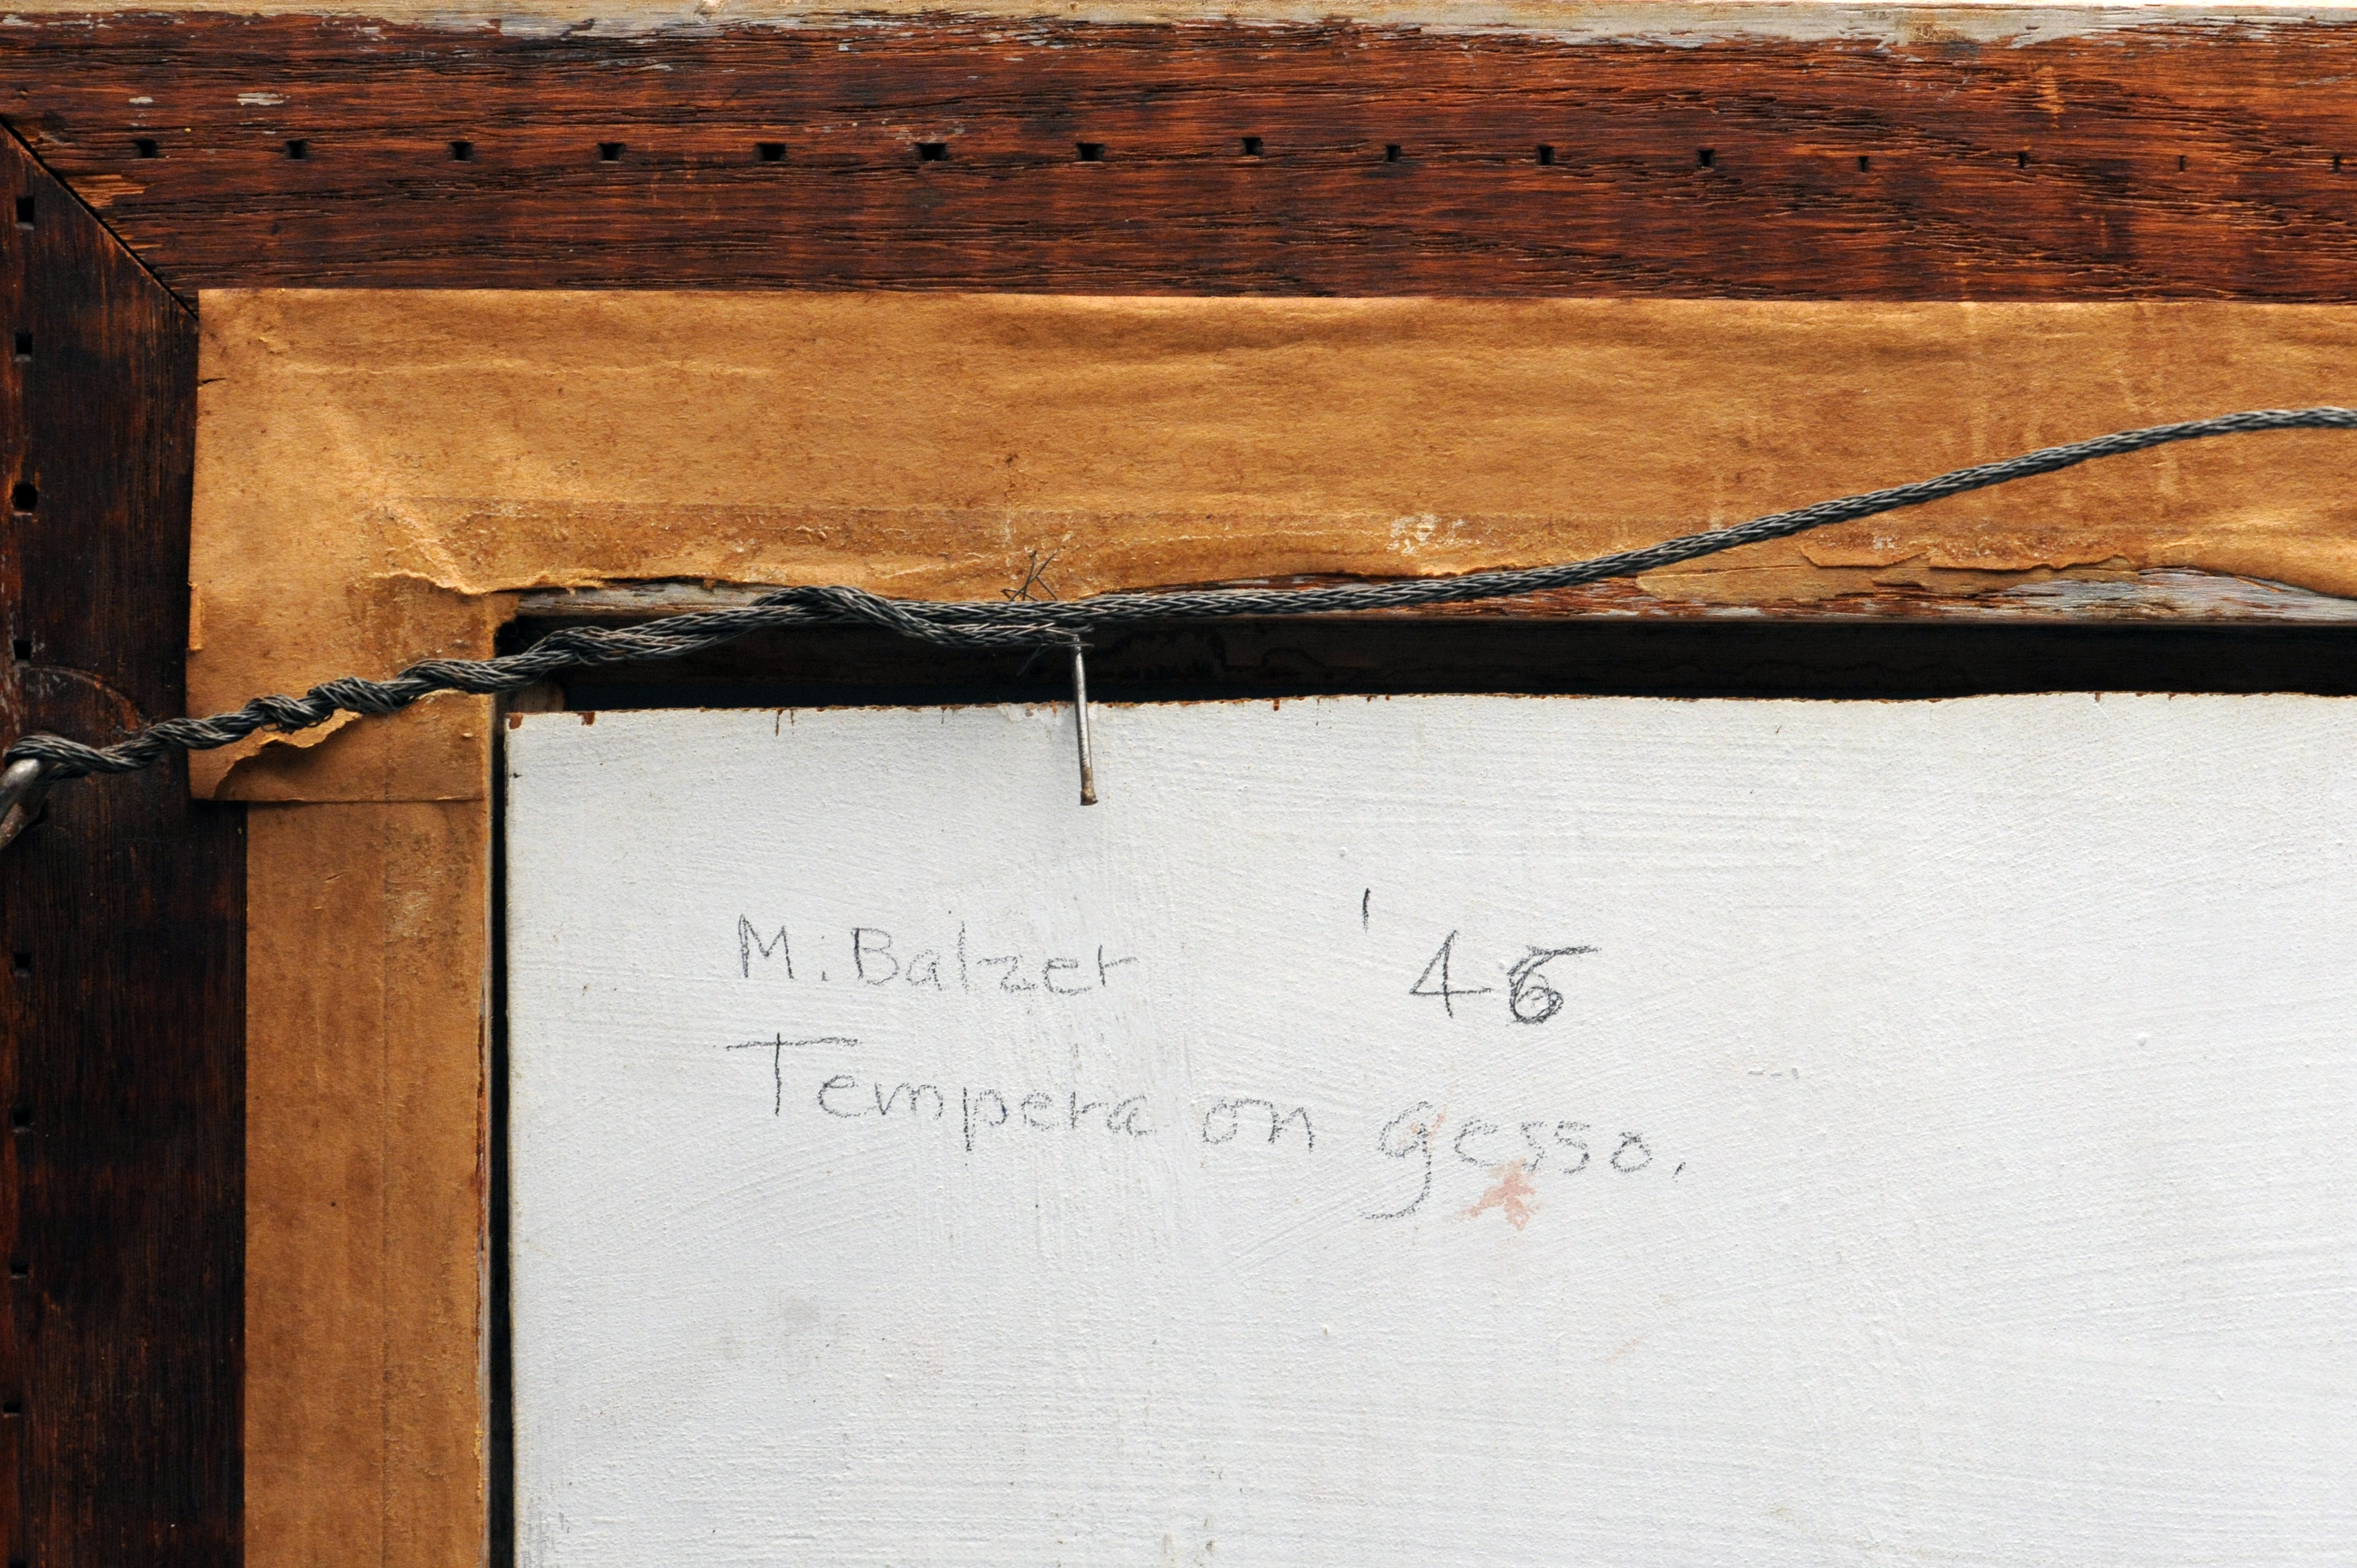 M. Balzer '46
Tempera on gesso.